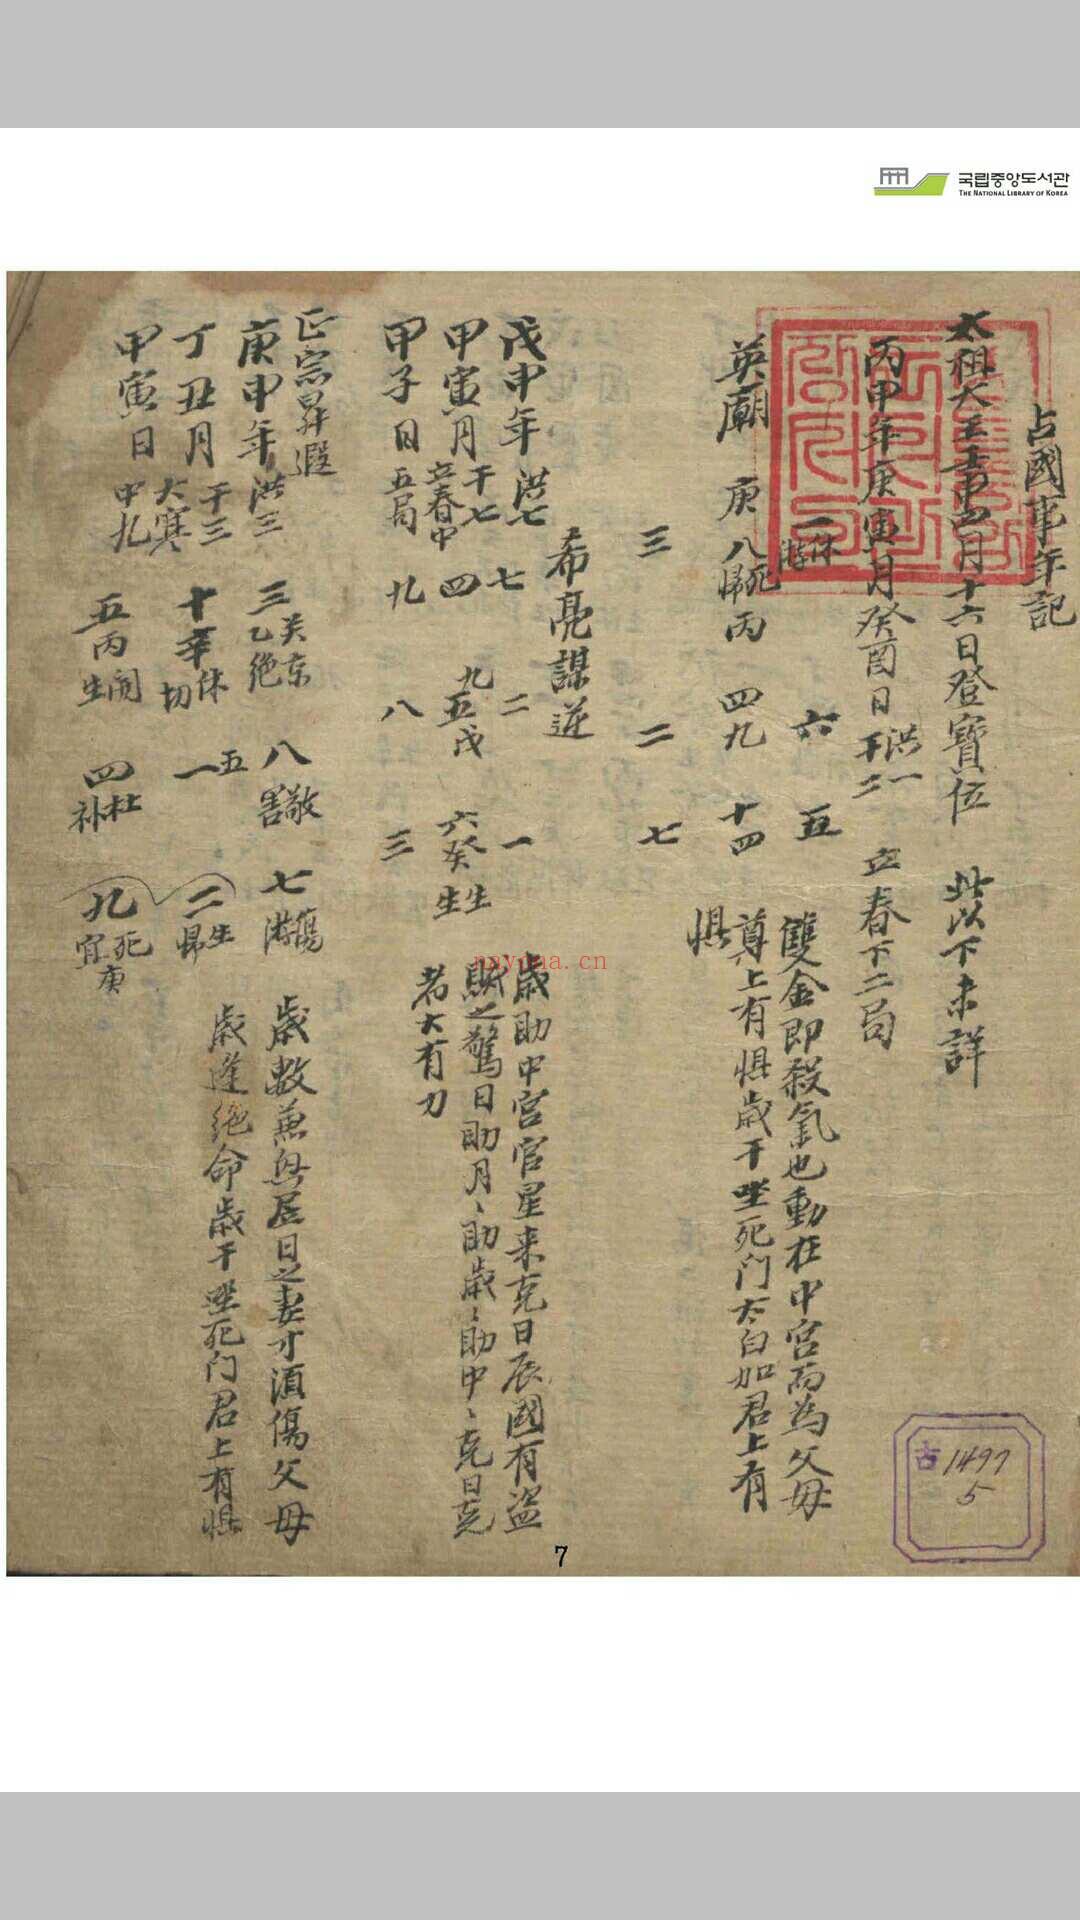 국립중앙도서관
THE NATIONAL LIBRARY OF KOREA
占國事年記
太祖大王壬申四月十六日登寶位 此以下未詳
丙甲年庚寅月癸酉日 洪一 干二 立春下二局
一休 游 六 五 雙金即殺氣也動在中宮而為父母
英廟 庚 八死 歸 丙 四九 十四 尊上有惧歲干坐死门太白加君上有
惧
三 二 七
希亮謀逆
戊申年 洪七 七 二 一 歲助中宮官星来克日辰國有盜
甲寅月 干七 立春中 四 九 五戊 六癸 生生 賊之驚日助月〻助歲〻助中〻克日克
甲子日 五局 九 八 三 者大有刀
正宗昇遐
庚申年 洪三 三 乙絶 八 害 七 傷 游 歲數兼無居日之妻才須傷父母
丁丑月 干三 大寒 十辛 休 五 一 二 生 歸 歲逢絶命歲干坐死门君上有惧
甲寅日 中九 五丙 生 四 杜 九 死 宜 庚
nayona.cn
古 1497
5
7